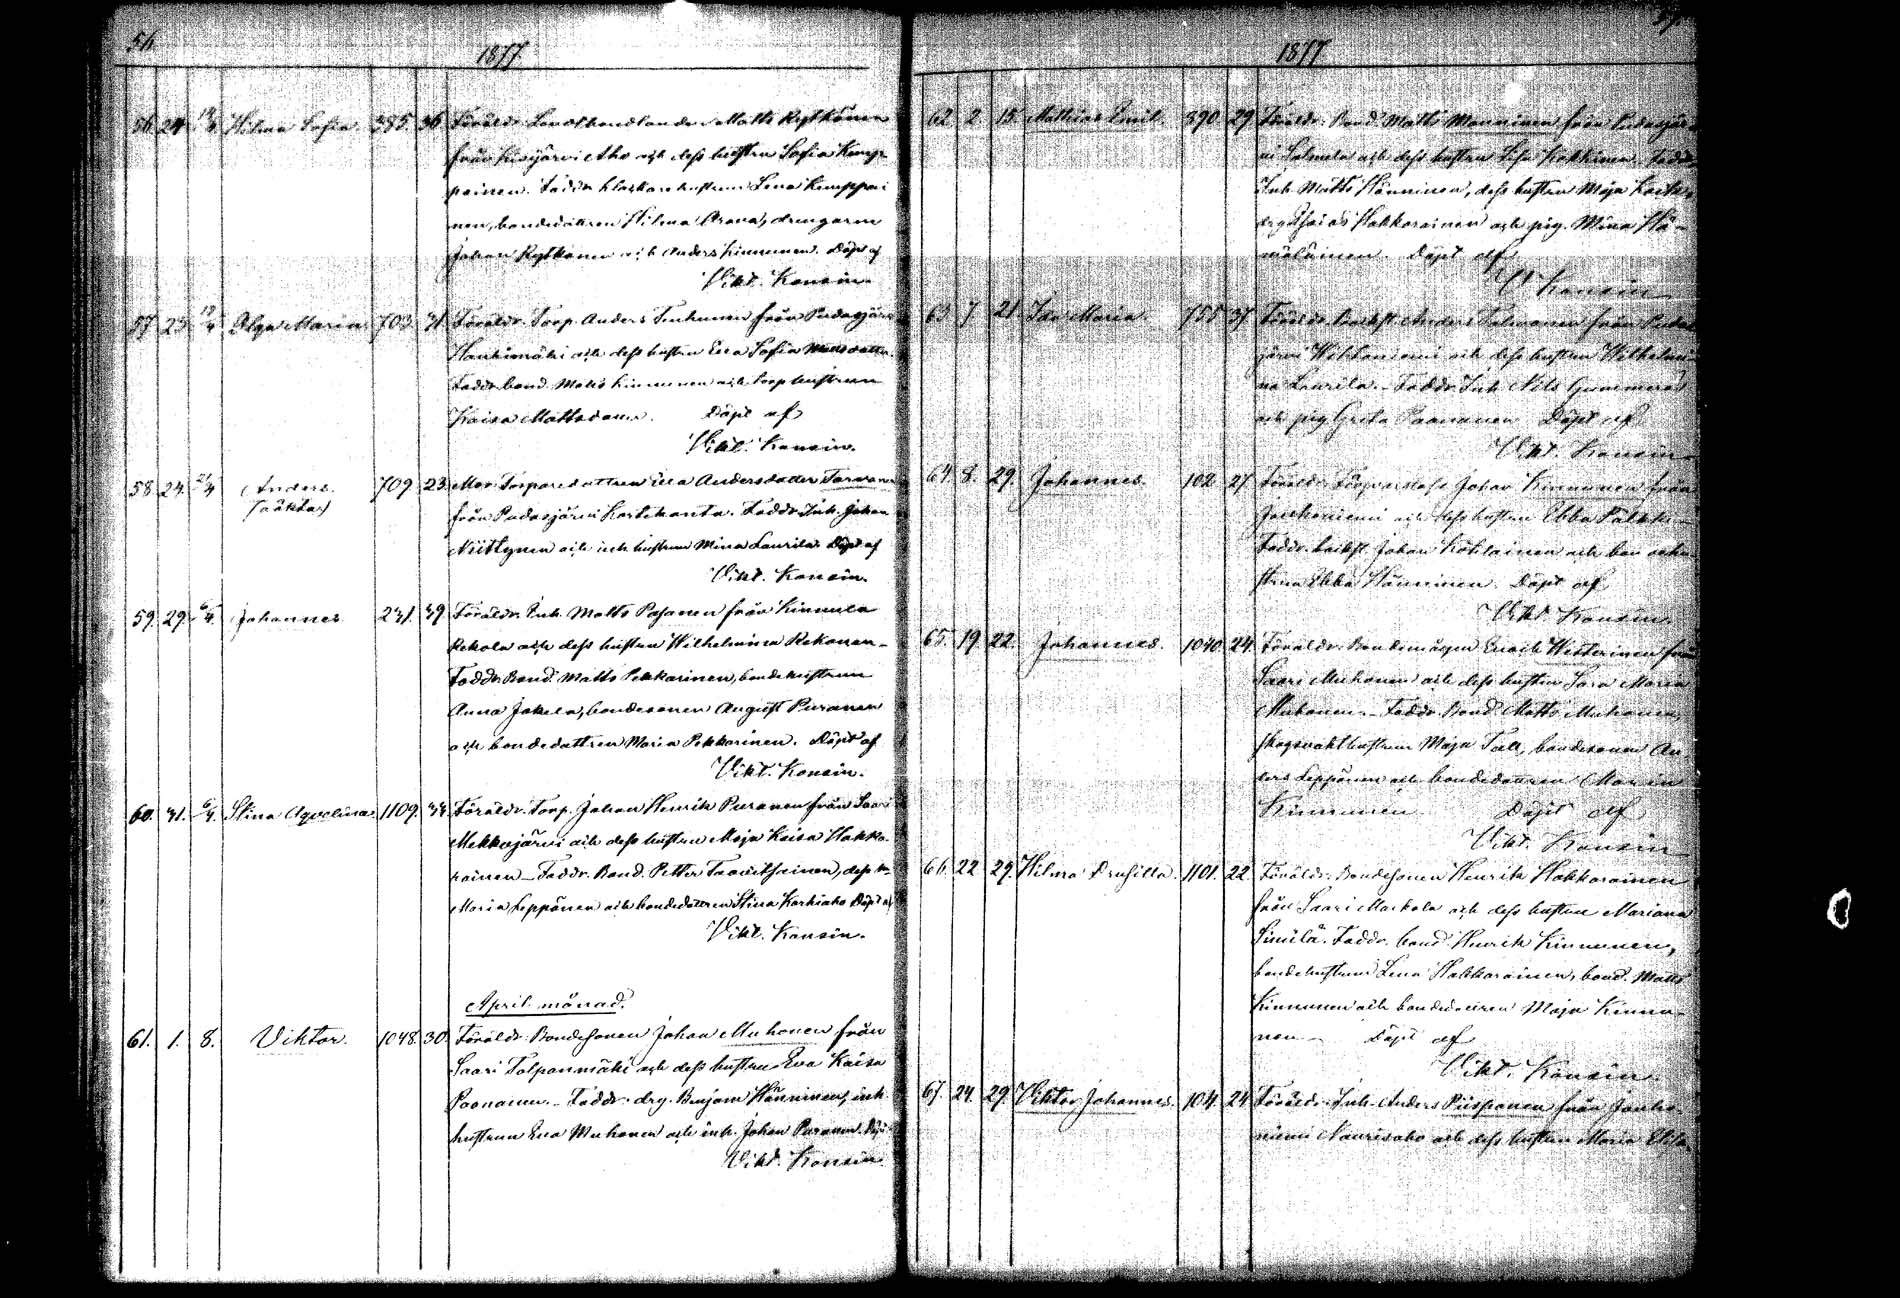 56
1877.
56. 24. 19/4 Hilma Sofia. 385. 36 Föräldr. Landthandlanden Matts Rytkönen
från Kivijärvi Aho och dess hustru Sofia Kemp-
painen. Faddr. klockarehustrun Lena Kemppai
nen, bondedottren Hilma Arava, drengarne
Johan Rytkönen och Anders Kinnunen. Döpt af
Vikt. Konsin.
57. 25. 19/4 Olga Maria 703. 31. Föräldr. Torp. Anders Tenhunen från Pudasjärvi
Hankimäki och dess hustru Eva Sofia Mattsdotter.
Faddr. bond. Matts Kinnunen och torp. hustrun
Kaisa Mattsdotter. Döpt af
Vikt. Konsin.
58. 24. /4 Anders. 709 23. Mor. Torparedottren Eva Andersdotter Tarvainen
(oäkta)
från Pudasjärvi Kortekanta. Faddr. Inh. Johan
Niittynen och inh. hustrun Mina Laurila. Döpt af
Vikt. Konsin.
59. 29. 6/4. Johannes 231. 39. Föräldr. Inh. Matts Pasanen från Kinnula
Rekola och dess hustru Wilhelmina Rekonen.
Faddr. Bond. Matts Pekkarinen, bondehustrun
Anna Jakula, bondesonen August Puranen
och bondedottren Maria Pekkarinen. Döpt af
Vikt. Konsin.
60. 31. 6/4. Stina Aqvelina 1109. 34. Föräldr. Torp. Johan Henrik Puranen från Saari
Mekkojärvi och dess hustru Maja Kaisa Hakka-
rainen. Faddr. Bond. Petter Taavitsainen, dess h.
Maria Leppänen och bondedottren Stina Karhiaho Döpt af
Vikt. Konsin.
April månad.
61. 1. 8. Viktor. 1048. 30. Föräldr. Bondesonen Johan Muhonen från
Saari Talpanmäki och dess hustru Eva Kaisa
Paananen. Faddr. drg. Benjam Hänninen, inh.
hustrun Eva Muhonen och inh. Johan Puranen. Döpt
Vikt. Konsin.
57
1877
62. 2 15. Mathias Emil. 390. 29 Föräldr. Bond. Matts Manninen från Pudasjär-
vi Salmela och dess hustru Lisa Kokkinen. Faddr.
Inh. Matts Hänninen, dess hustru Maja
drg. Esaias Hakkarainen och pig. Mina Hä-
mäläinen. Döpt af
V. Konsin
63. 7 21. Ida Maria. 755 37 Föräldr. Backst. Anders Salmonen från Pudas-
järvi Wiitaniemi och dess hustru Wilhelmi-
na Laurila. Faddr. Inh. Nils Gummerus
och pig. Greta Paananen Döpt af
Vikt. Konsin
64. 8. 29. Johannes. 102. 27 Föräldr. Johan Kinnunen från
Jauhoniemi och dess hustru Ebba Pälkki.
Faddr. backst. Johan Kohlainen och hu-
strun Ebba Hänninen. Döpt af
Vikt. Konsin.
65. 19. 22. Johannes. 1040. 24. Föräldr. Bondemågen Enoch Witterinen från
Saari Muhonen och dess hustru Sara Maria
Muhonen. Faddr. Bond. Matts Muhonen,
skogsvakthustrun Maja Tall, bondesonen An-
ders Leppänen och bondedottren Maria
Kinnunen. Döpt af
Vikt. Konsin
66. 22 29. Hilma Drusilla. 1101. 22. Föräldr. Bondesonen Henrik Hakkarainen
från Saari Maikola och dess hustru Mariana
Similä. Faddr. bond. Henrik Kinnunen,
bondehustrun Lena Hakkarainen, bond. Matts
Kinnunen och bondedottren Maja Kinnu-
nen. Döpt af
Vikt. Konsin.
67. 24. 29. Viktor Johannes. 104. 24 Föräldr. Inh. Anders Piispanen från Jauho-
niemi Naurisaho och dess hustru Maria Elisa-